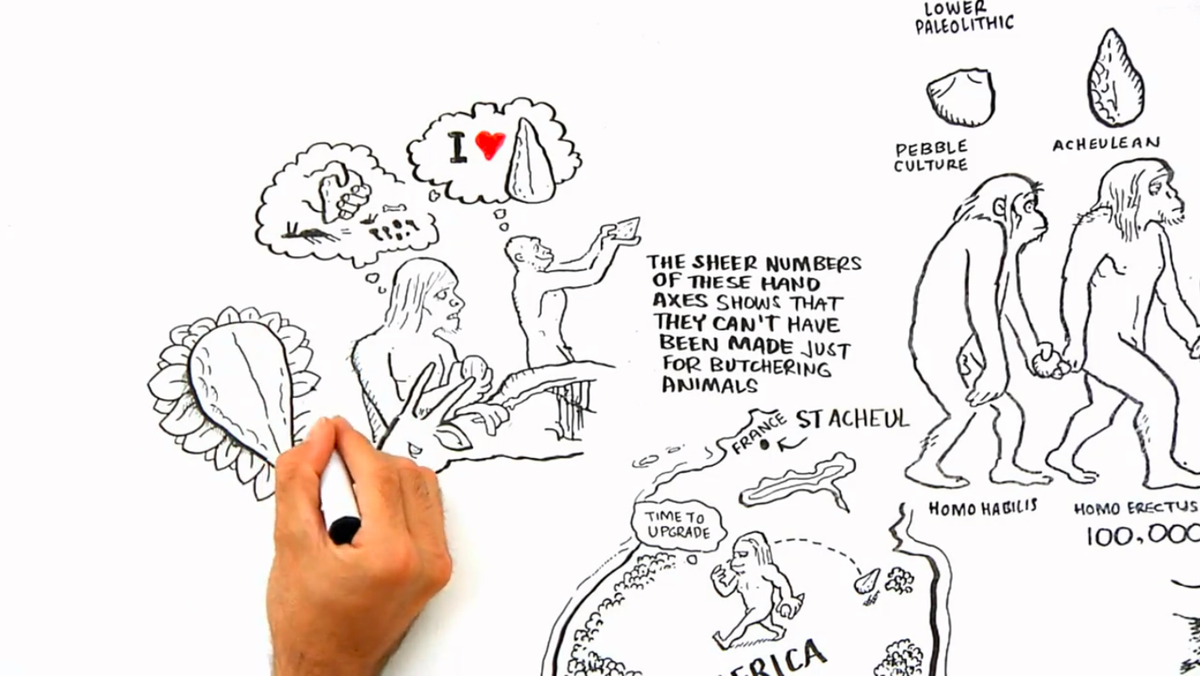 LOWER
PALEOLITHIC
I ♥
PEBBLE
CULTURE
ACHEULEAN
THE SHEER NUMBERS
OF THESE HAND
AXES SHOWS THAT
THEY CAN'T HAVE
BEEN MADE JUST
FOR BUTCHERING
ANIMALS
FRANCE
ST ACHEUL
TIME TO
UPGRADE
HOMO HABILIS
HOMO ERECTUS
100,000
ERICA